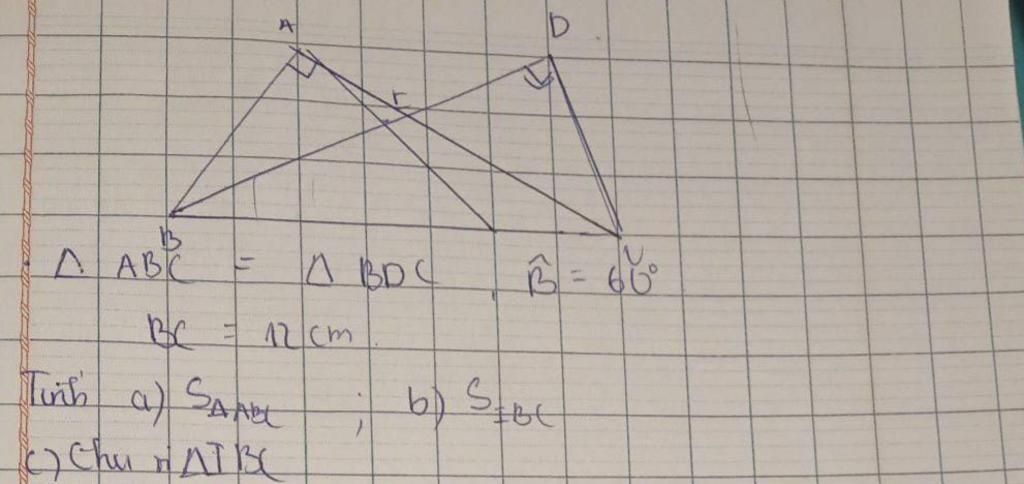 A D
I
B C
Δ ABC = Δ BDC , B̂ = 60°
BC = 12 cm
Tính a) S_ΔABC ; b) S_IBC
c) Chu vi ΔIBC